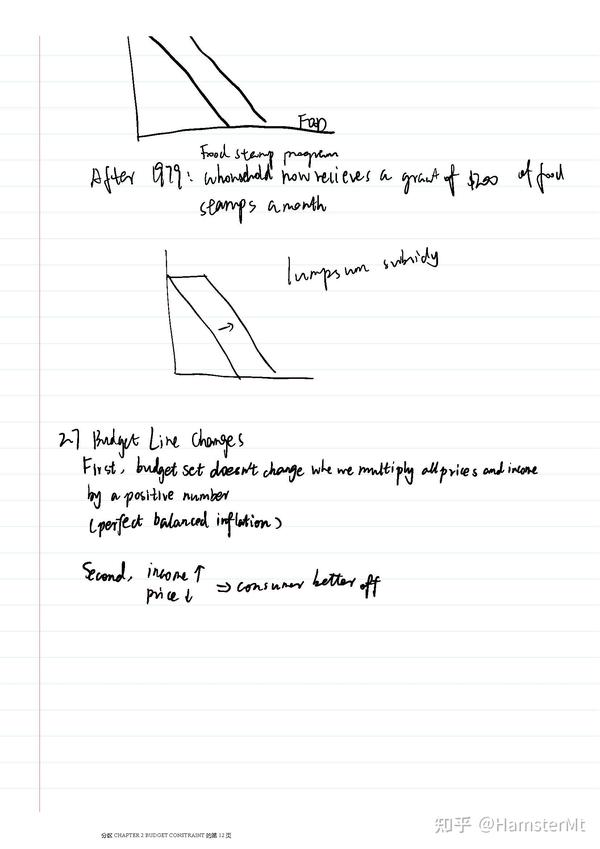 Food
Food stamp program
After 1979: whousehold now relieves a grant of $200 of food
stamps a month
lumpsum subsidy
2.7 Budget Line Changes
First, budget set doesn't change whe we multiply all prices and income
by a positive number
(perfect balanced inflation)
Second, income ↑
price ↓ ⇒ consumer better off
分区 CHAPTER 2 BUDGET CONSTRAINT 的第 12 页
知乎 @HamsterMt